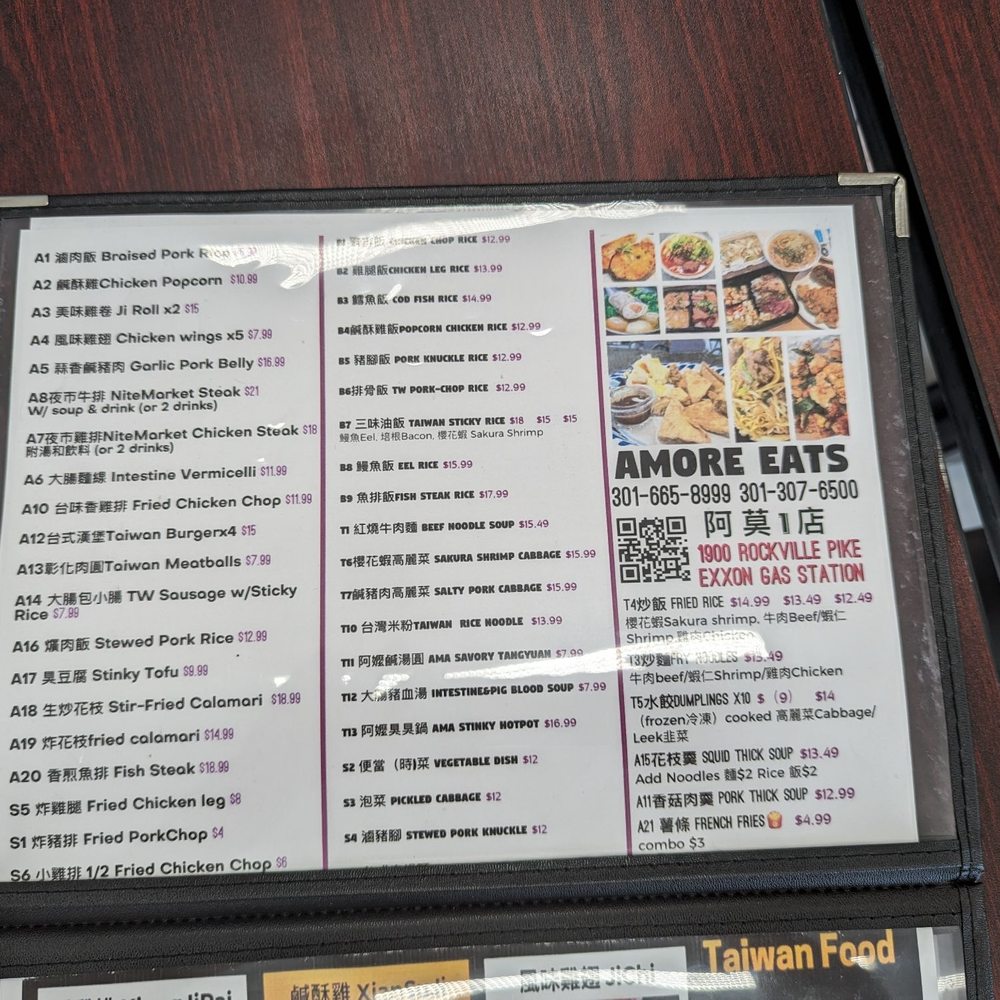 A1 滷肉飯 Braised Pork Rice
A2 鹹酥雞Chicken Popcorn $10.99
A3 美味雞卷 Ji Roll x2 $15
A4 風味雞翅 Chicken wings x5 $7.99
A5 蒜香鹹豬肉 Garlic Pork Belly $16.99
A8夜市牛排 NiteMarket Steak $21
W/ soup & drink (or 2 drinks)
A7夜市雞排NiteMarket Chicken Steak $18
附湯和飲料 (or 2 drinks)
A6 大腸麵線 Intestine Vermicelli $11.99
A10 台味香雞排 Fried Chicken Chop $11.99
A12台式漢堡Taiwan Burgerx4 $15
A13彰化肉圓Taiwan Meatballs $7.99
A14 大腸包小腸 TW Sausage w/Sticky
Rice $7.99
A16 爌肉飯 Stewed Pork Rice $12.99
A17 臭豆腐 Stinky Tofu $9.99
A18 生炒花枝 Stir-Fried Calamari $18.99
A19 炸花枝fried calamari $14.99
A20 香煎魚排 Fish Steak $18.99
S5 炸雞腿 Fried Chicken leg $8
S1 炸豬排 Fried PorkChop $4
S6 小雞排 1/2 Fried Chicken Chop $6
CHICKEN CHOP RICE $12.99
B2 雞腿飯CHICKEN LEG RICE $13.99
B3 鱈魚飯 COD FISH RICE $14.99
B4鹹酥雞飯POPCORN CHICKEN RICE $12.99
B5 豬腳飯 PORK KNUCKLE RICE $12.99
B6排骨飯 TW PORK-CHOP RICE $12.99
B7 三味油飯 TAIWAN STICKY RICE $18 $15 $15
鰻魚Eel, 培根Bacon, 櫻花蝦 Sakura Shrimp
B8 鰻魚飯 EEL RICE $15.99
B9 魚排飯FISH STEAK RICE $17.99
T1 紅燒牛肉麵 BEEF NOODLE SOUP $15.49
T6櫻花蝦高麗菜 SAKURA SHRIMP CABBAGE $15.99
T7鹹豬肉高麗菜 SALTY PORK CABBAGE $15.99
T10 台灣米粉TAIWAN RICE NOODLE $13.99
T11 阿嬤鹹湯圓 AMA SAVORY TANGYUAN $7.99
T12 大腸豬血湯 INTESTINE&PIG BLOOD SOUP $7.99
T13 阿嬤臭臭鍋 AMA STINKY HOTPOT $16.99
S2 便當（時)菜 VEGETABLE DISH $12
S3 泡菜 PICKLED CABBAGE $12
S4 滷豬腳 STEWED PORK KNUCKLE $12
AMORE EATS
301-665-8999 301-307-6500
阿莫1店
1900 ROCKVILLE PIKE
EXXON GAS STATION
T4炒飯 FRIED RICE $14.99 $13.49 $12.49
櫻花蝦Sakura shrimp, 牛肉Beef/蝦仁
Shrimp,雞肉Chicken
T3炒麵FRY NOODLES $15.49
牛肉beef/蝦仁Shrimp/雞肉Chicken
T5水餃DUMPLINGS X10 $（9） $14
（frozen冷凍）cooked 高麗菜Cabbage/
Leek韭菜
A15花枝羹 SQUID THICK SOUP $13.49
Add Noodles 麵$2 Rice 飯$2
A11香菇肉羹 PORK THICK SOUP $12.99
A21 薯條 FRENCH FRIES🍟 $4.99
combo $3
Taiwan Food
鹹酥雞
風味雞翅 JiChi